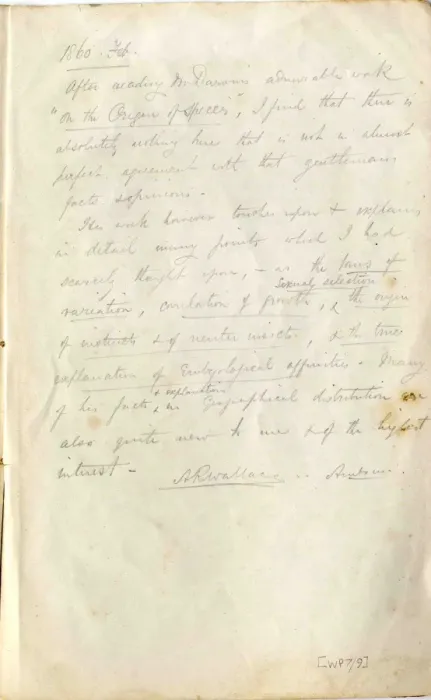 1860. Feb.
After reading Mr Darwin's admirable work
"On the Origin of Species", I find that there is
absolutely nothing here that is not in almost
perfect agreement with that gentlemans
facts & opinions.
His work however touches upon & explains
in detail many points which I had
scarcely thought upon, - as the laws of
variation, correlation of growth, sexual selection, & the origin
of instincts & of neuter insects, & the true
explanation of Embryological affinities. Many
of his facts & explanations in Geographical distribution are
also quite new to me & of the highest
interest -
ARWallace .. Amboina.
[WP7/9]